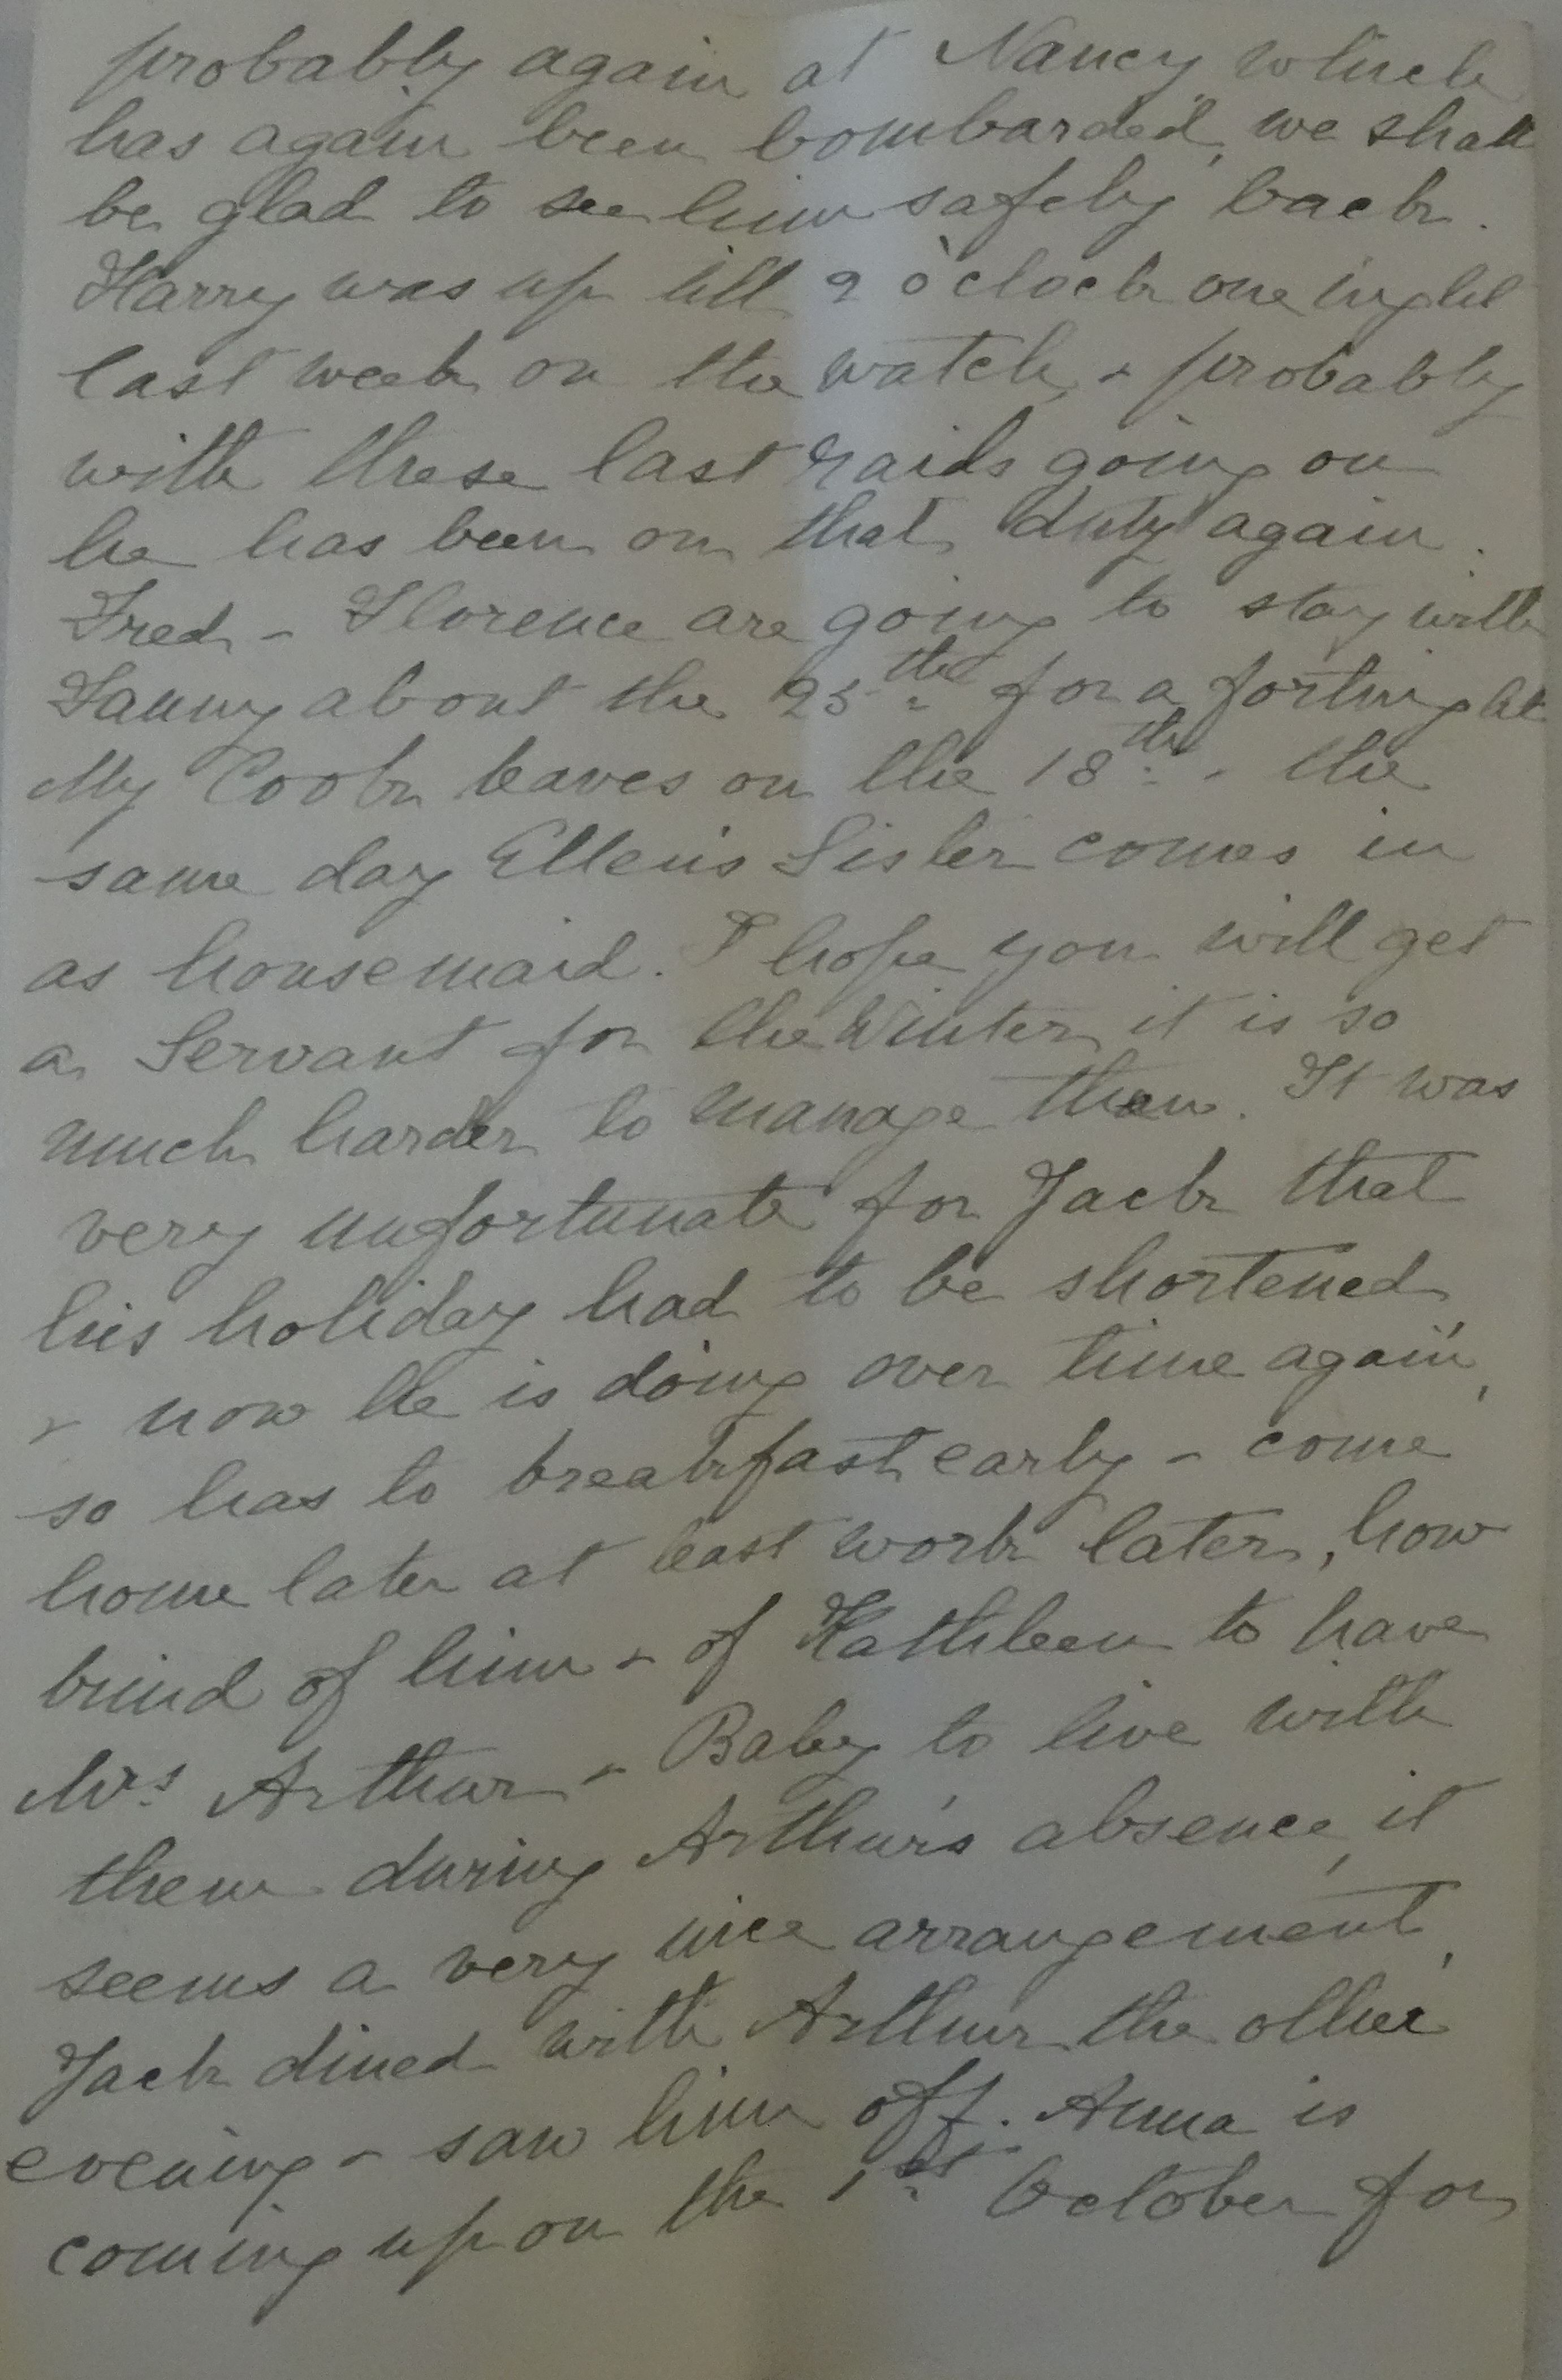 probably again at Nancy which
has again been bombarded, we shall
be glad to see him safely back.
Harry was up till 2 o'clock one night
last week on the watch, & probably
with these last raids going on
he has been on that duty again.
Fred & Florence are going to stay with
Fanny about the 25th for a fortnight
My Cook leaves on the 18th & the
same day Ellen's Sister comes in
as housemaid. I hope you will get
a Servant for the Winter, it is so
much harder to manage then. It was
very unfortunate for Jack that
his holiday had to be shortened
& now he is doing over time again,
so has to breakfast early & come
home later at least work later, how
kind of him & of Kathleen to have
Mrs Arthur & Baby to live with
them during Arthur's absence, it
seems a very nice arrangement,
Jack dined with Arthur the other
evening & saw him off. Anna is
coming up on the 1st October for